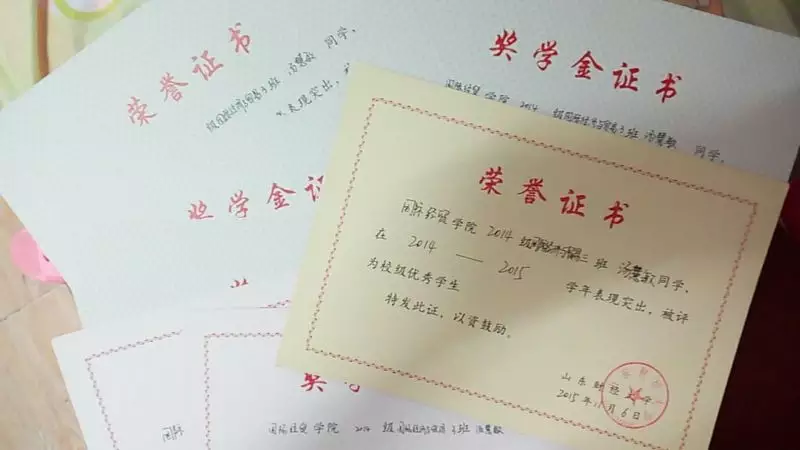 荣誉证书
级国际经济与贸易3班 汤慧敏 同学,
表现突出,被
奖学金证书
国际经贸 学院 2014 级国际经济与贸易3班 汤慧敏 同学,
奖学金证
荣誉证书
国际经贸学院 2014 级国际经济与贸易三班 汤慧敏同学,
在 2014 — 2015 学年表现突出,被评
为校级优秀学生
特发此证,以资鼓励。
山东财经大学
2015年11月6日
奖学
国际
国际经贸 学院 2014 级 国际经济与贸易3班 汤慧敏